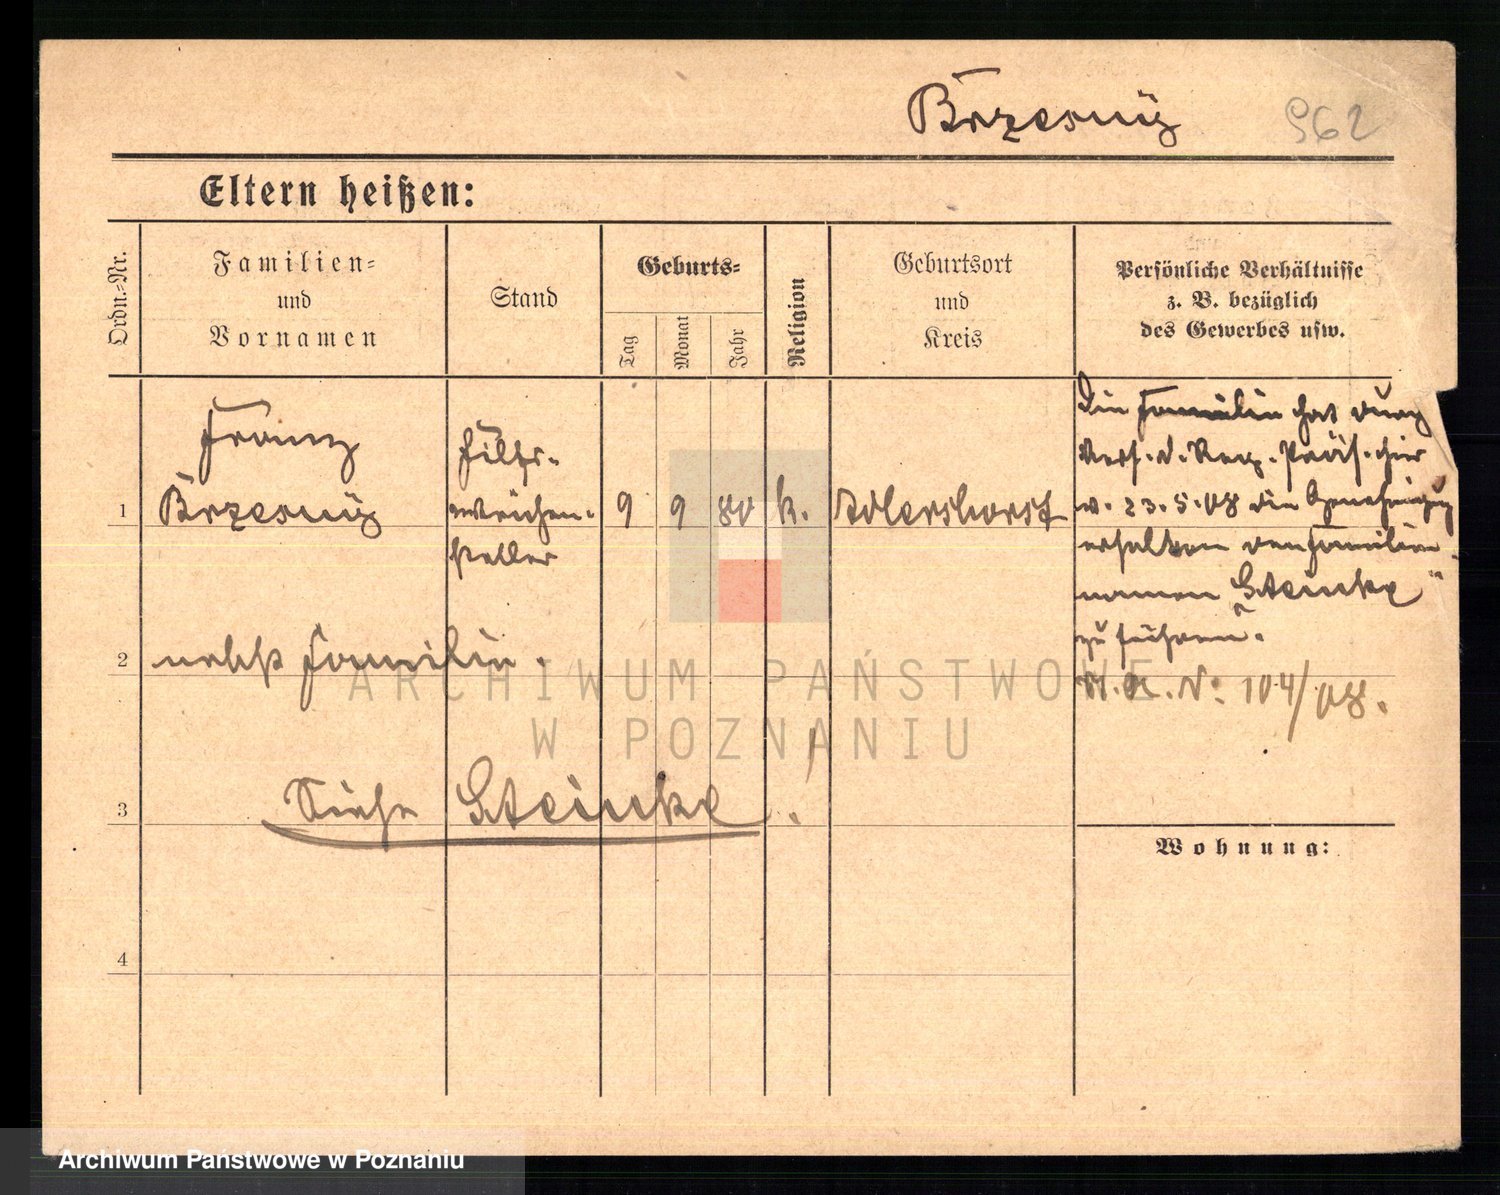 Brzesny 962
Eltern heißen:
Ordn.-Nr.
Familien-
und
Vornamen
Stand
Geburts-
Tag
Monat
Jahr
Religion
Geburtsort
und
Kreis
Persönliche Verhältnisse
z. B. bezüglich
des Gewerbes usw.
1
Franz
Brzesny
Hilfs-
weichen-
steller
9 9 80 k. Adlershorst
Die Familie hat durch
Verf. d. Reg. Präs. hier
v. 23.5.08 die Genehmigung
erhalten den Familien-
namen „Steinke“
zu führen.
No 104/08.
2 nebst Familie.
3 Siehe Steinke.
Wohnung:
4
ARCHIWUM PAŃSTWOWE
W POZNANIU
Archiwum Państwowe w Poznaniu